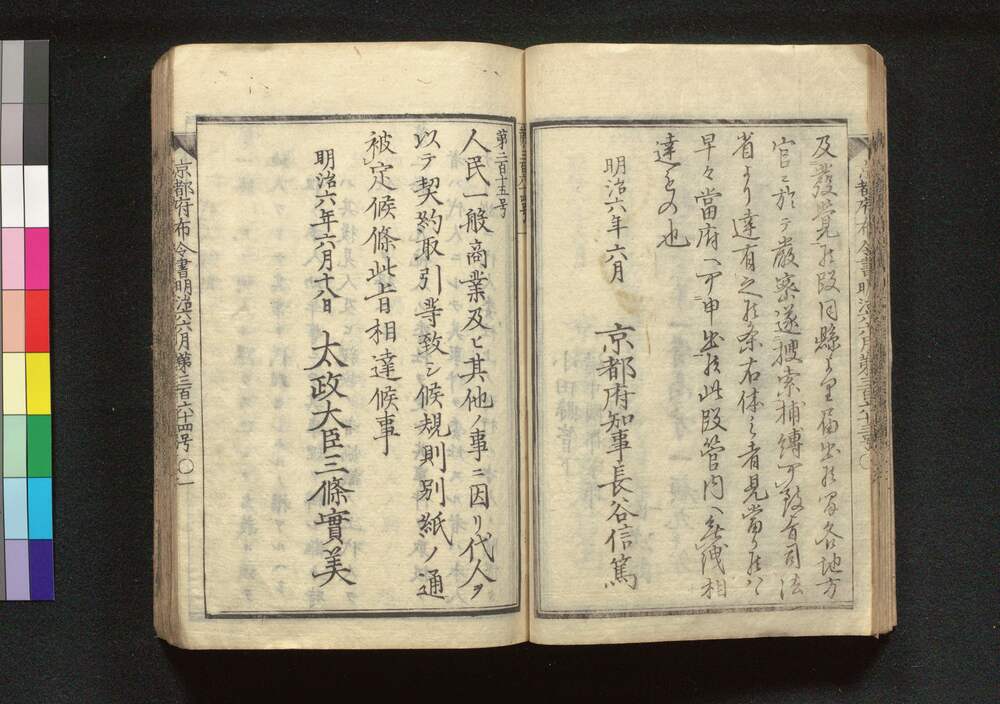 及發覚候段同縣より届出候間各地方
官ニ於テ嚴察遂捜索捕縛可致旨司法
省より達有之候条右体之者見當候ハヽ
早々當府へ可申出候此段管内へ無洩相
達るもの也
明治六年六月
京都府知事長谷信篤
第二百十五号
人民一般商業及ヒ其他ノ事ニ因リ代人ヲ
以テ契約取引等致シ候規則別紙ノ通
被定候條此旨相達候事
明治六年六月十八日
太政大臣三條實美
京都府布令書明治六六月第三百六十四号〇一